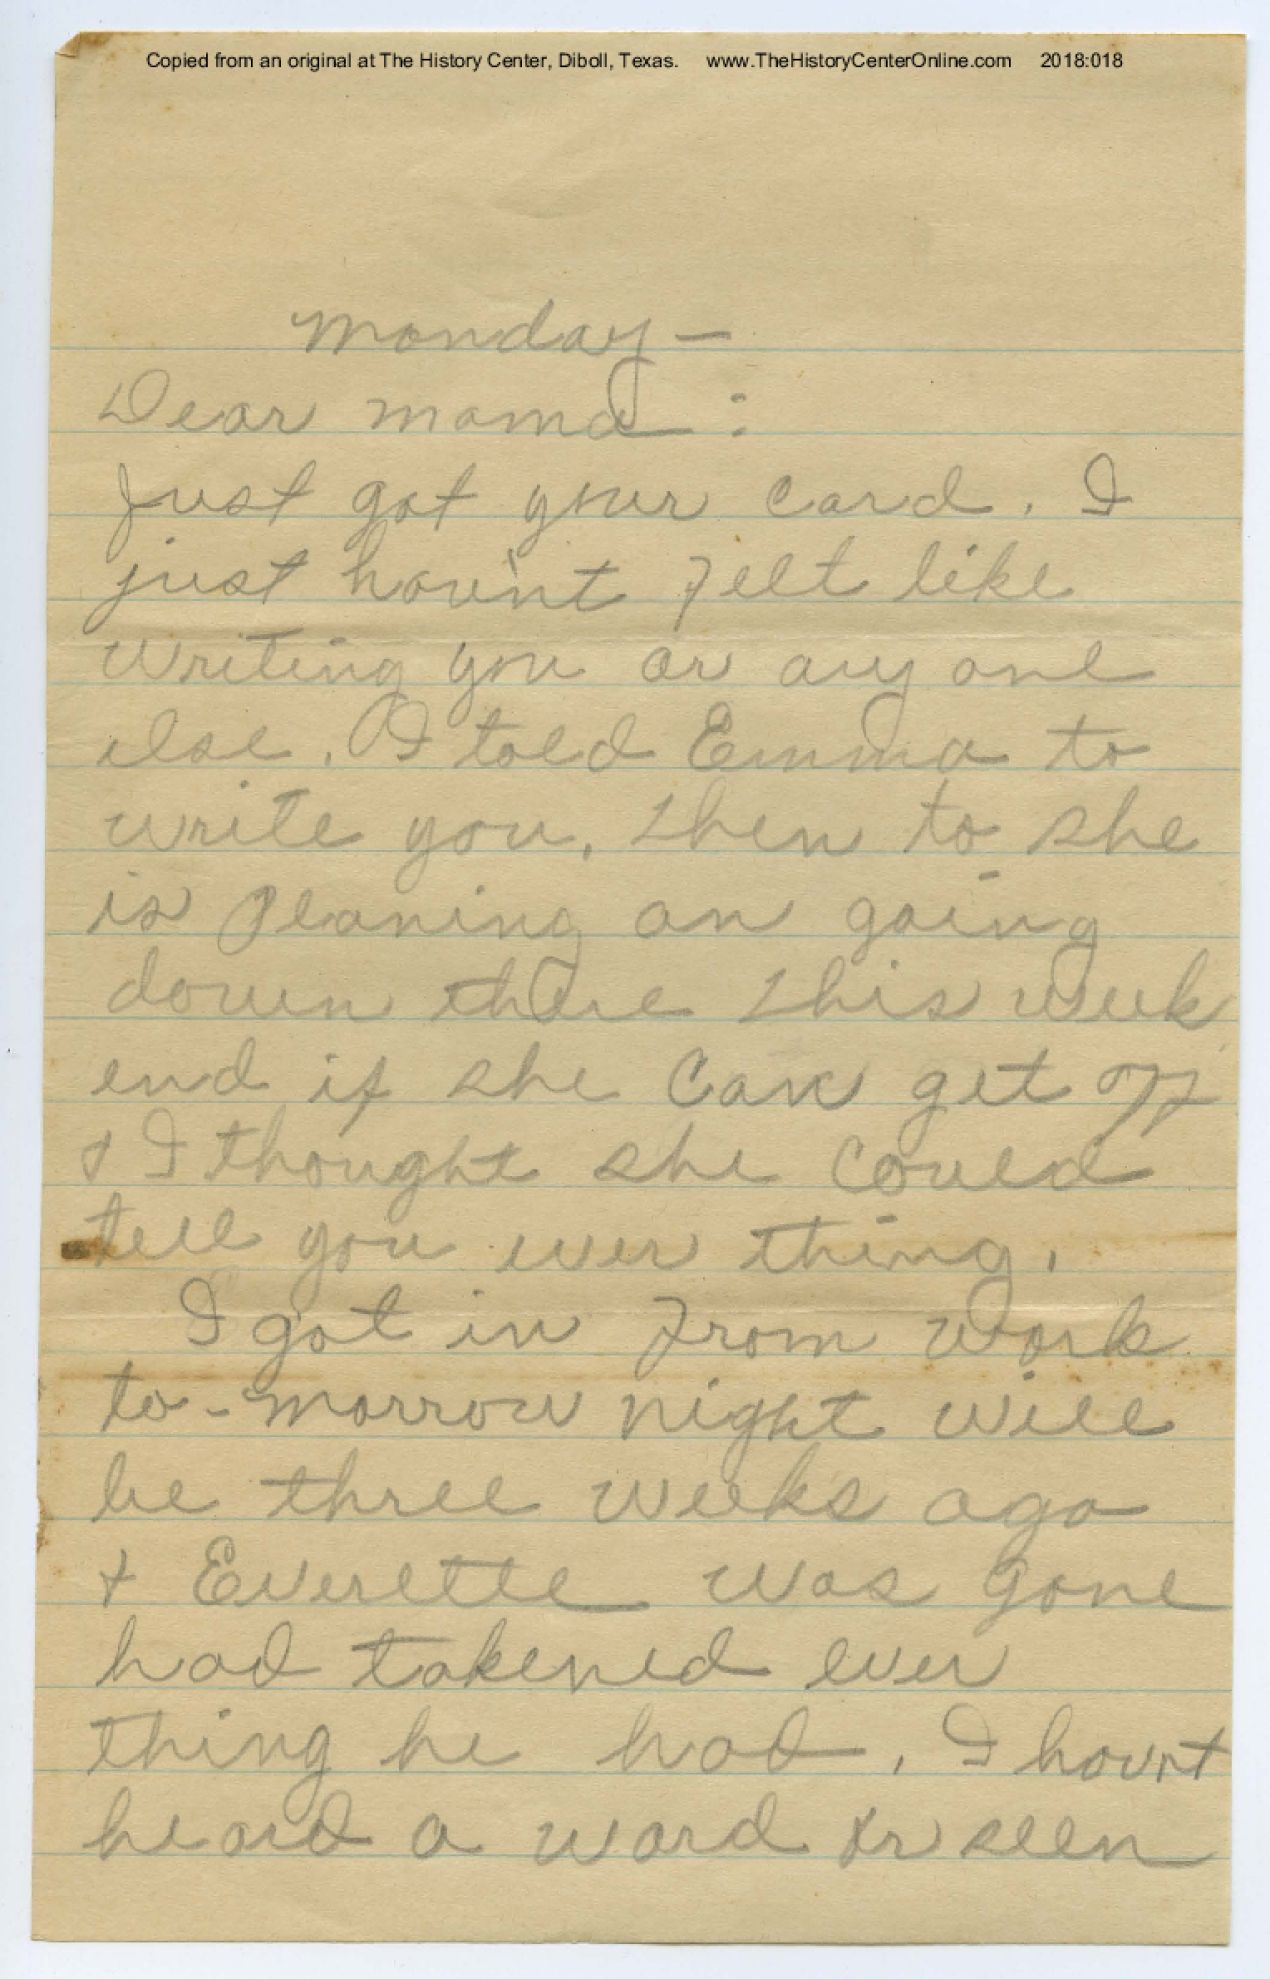 Copied from an original at The History Center, Diboll, Texas. www.TheHistoryCenterOnline.com 2018:018
Monday —
Dear mama :
Just got your card. I
just hav'nt felt like
writing you or any one
else. I told Emma to
write you, then to she
is planing on going
down there this week
end if she can get off
+ I thought she could
tell you ever thing.
I got in from work
to-morrow night will
be three weeks ago
+ Everette was gone
had takened ever
thing he had. I havnt
heard a word or seen